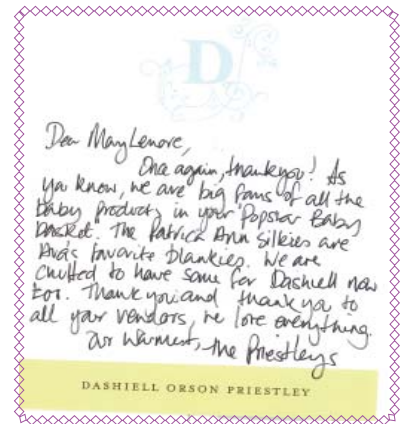 D
Dear MaryLenore,
Once again, thank you! As
you know, we are big fans of all the
baby products in your Popstar Baby
basket. The Patricia Ann Silkies are
Ava's favorite blankies. We are
thrilled to have some for Dashiell now
too. Thank you and thank you to
all your vendors, we love everything.
Our Warmest, The Priestleys
DASHIELL ORSON PRIESTLEY